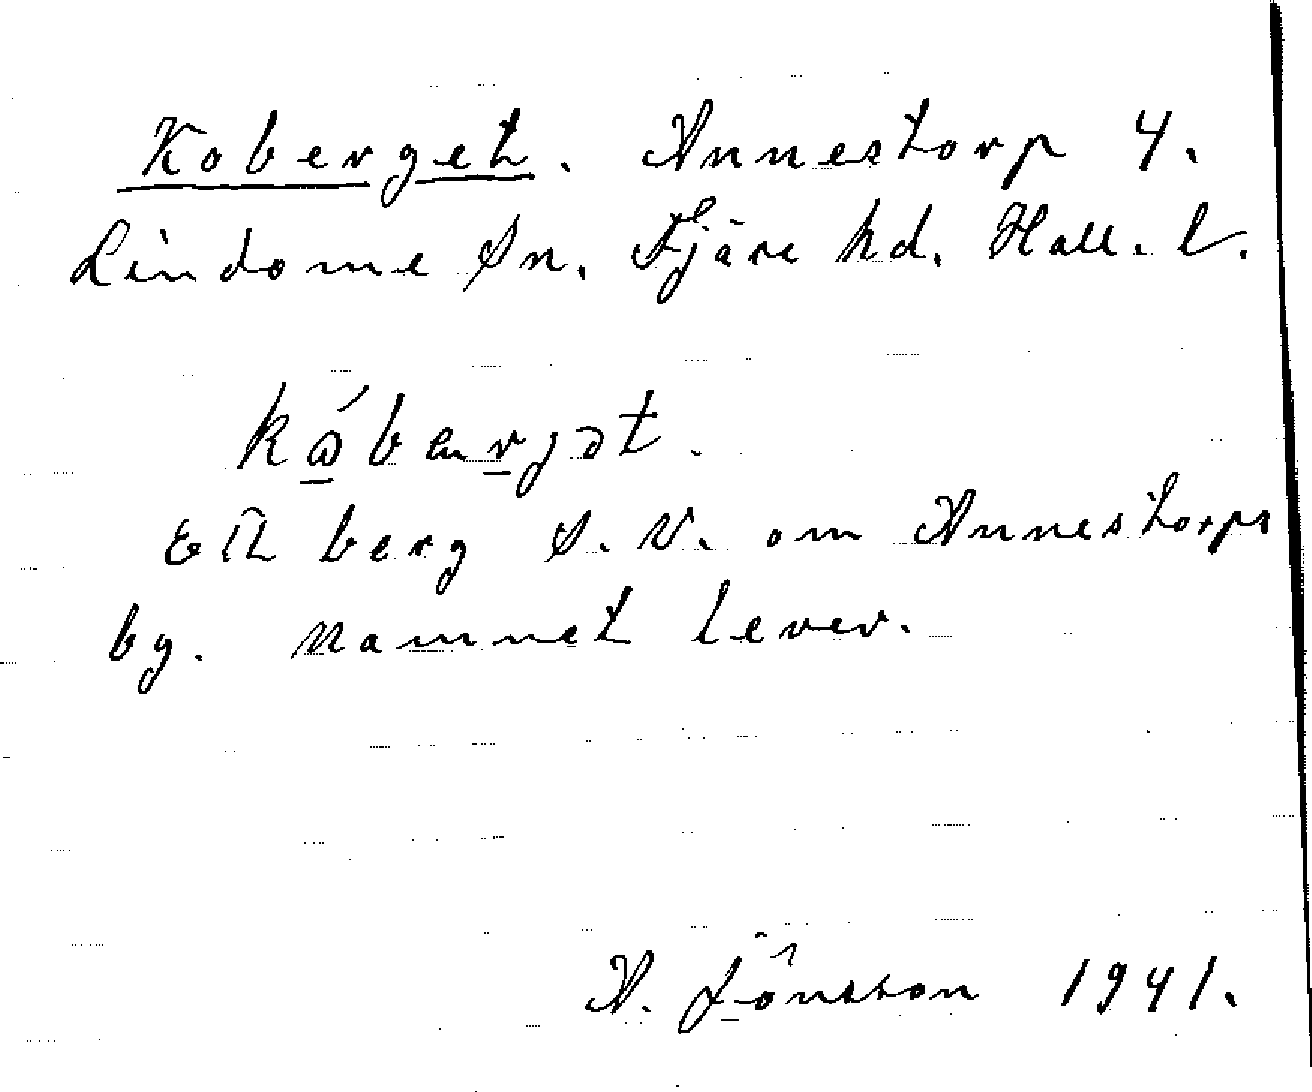 Koberget. Annestorp 4.
Lindome Sn. Fjäre hd. Hall. l.
Ett berg S.V. om Annestorps
by. Namnet lever.
A. Jönsson 1941.